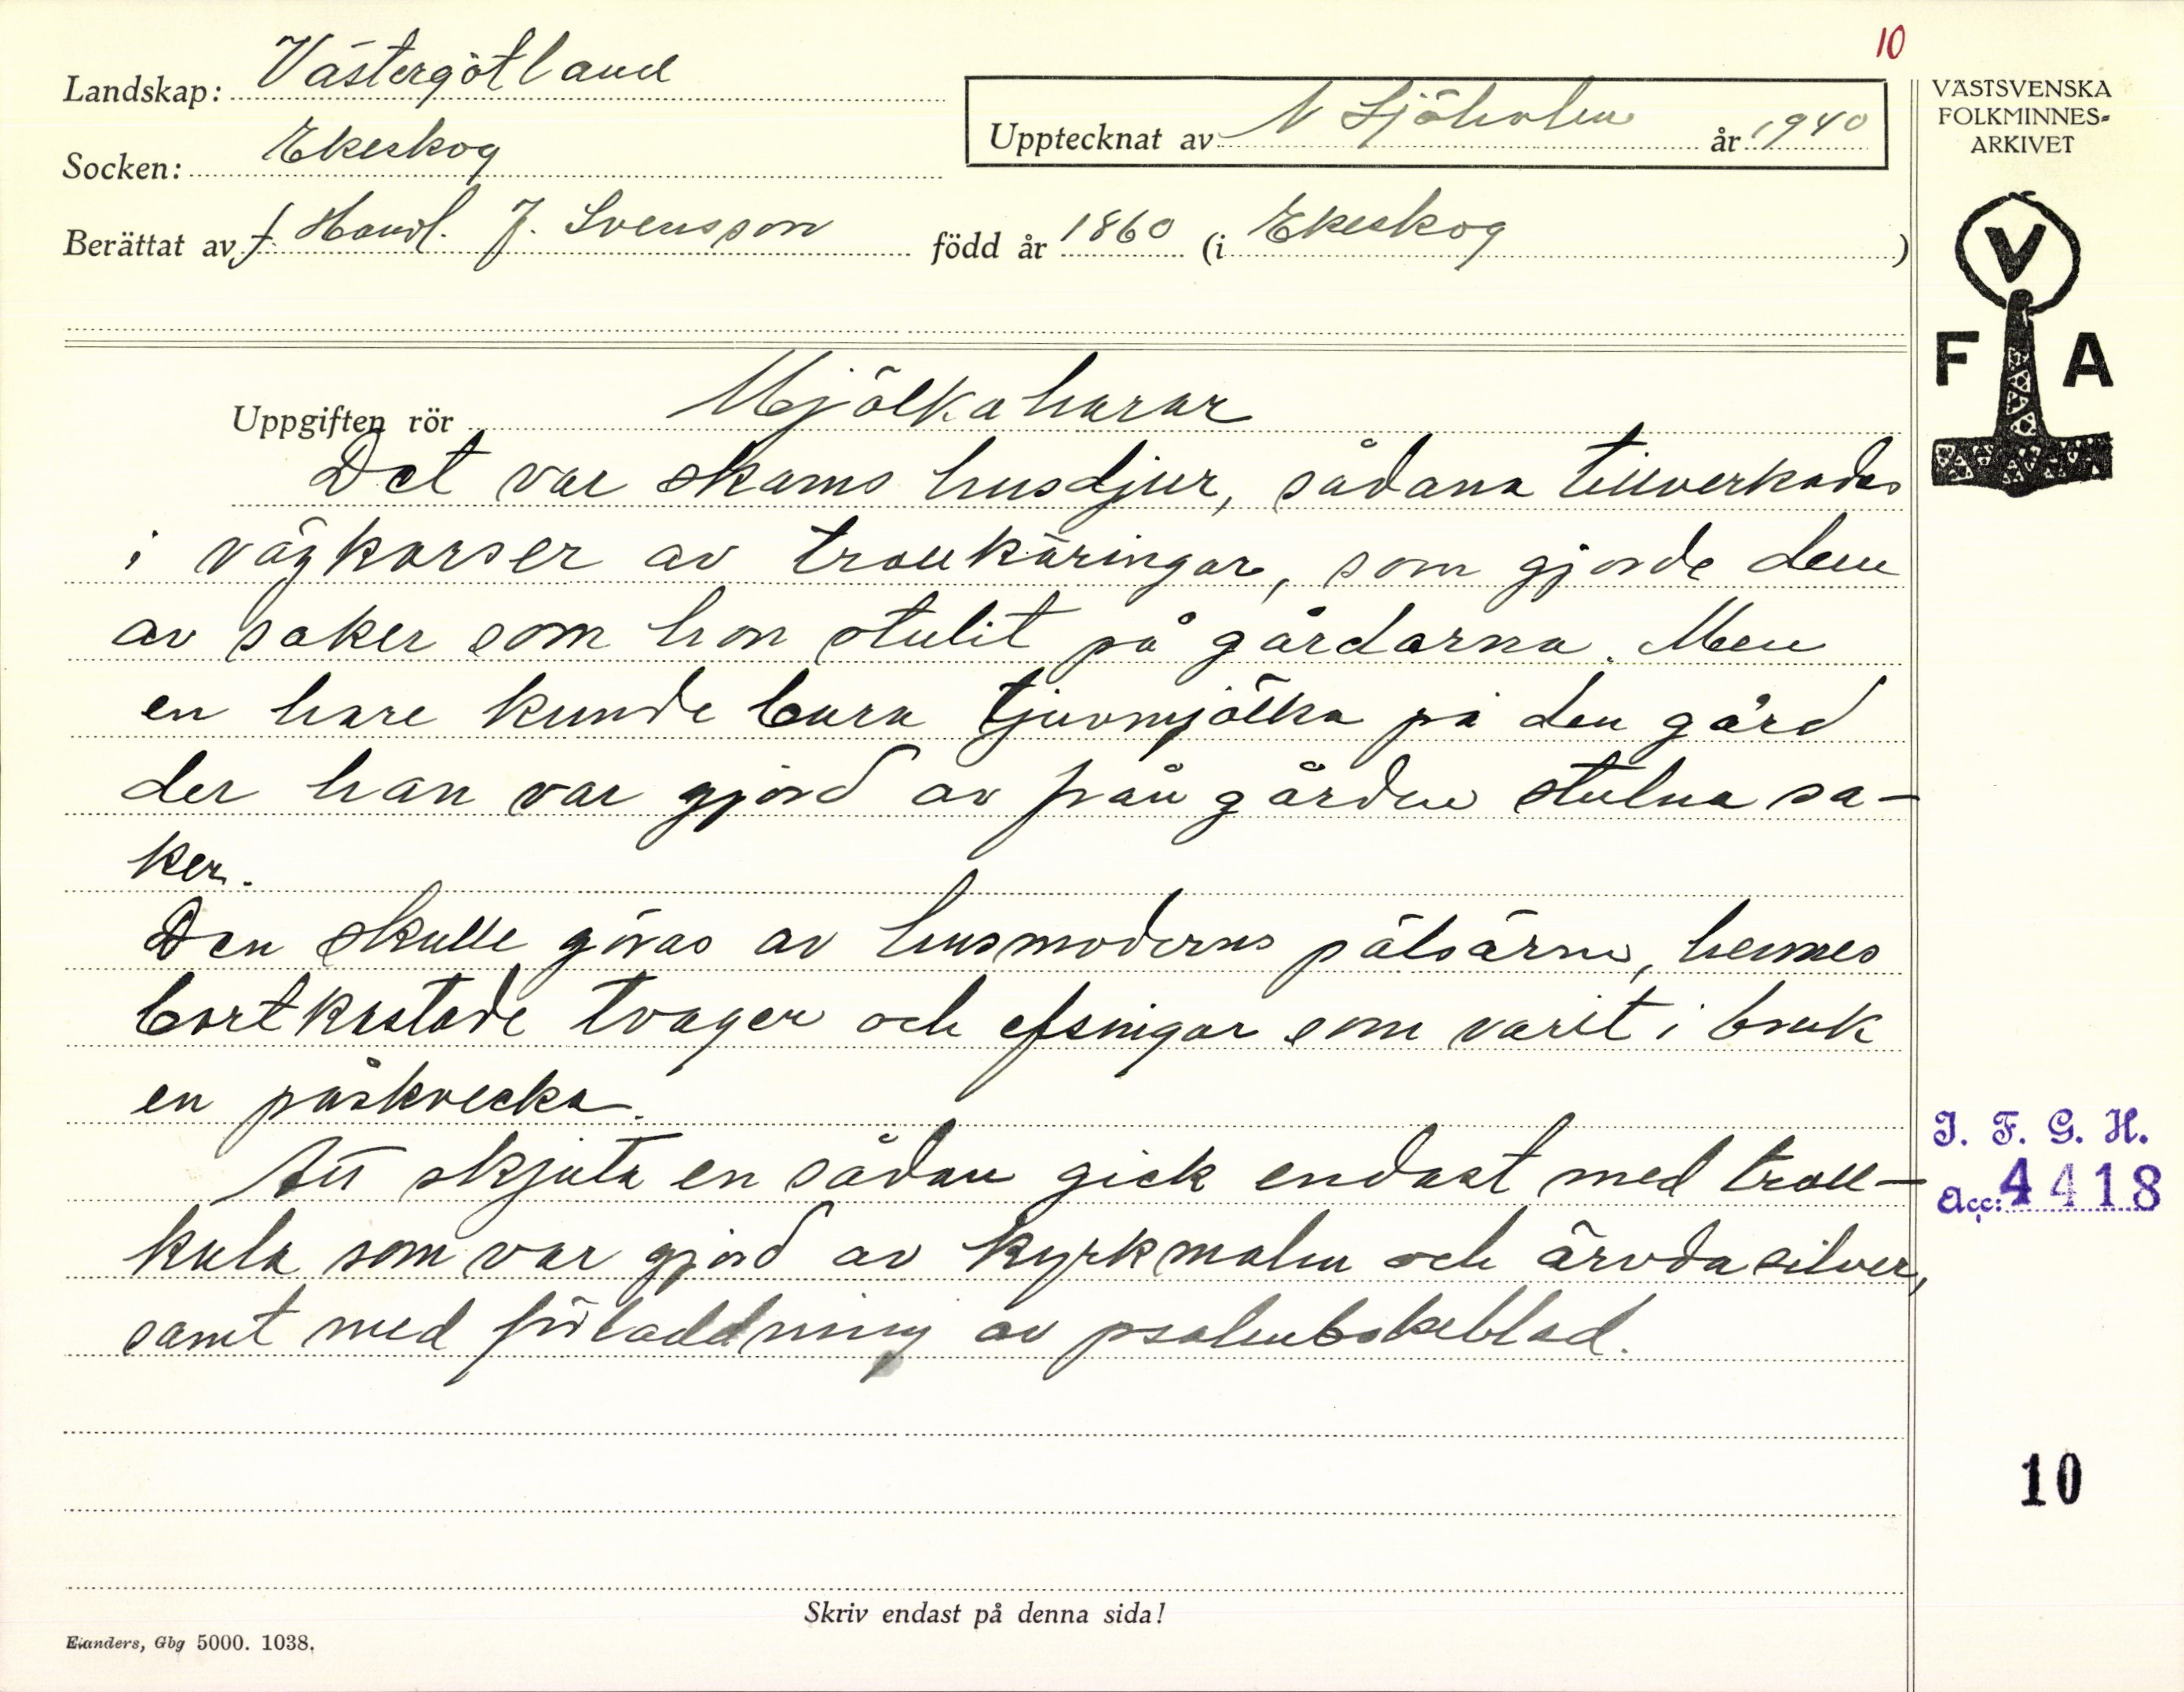 10
Landskap: Västergötland
Upptecknat av N Sjöholm år 1940
Socken: Ekeskog
Berättat av f. Handl. J. Svensson född år 1860 (i Ekeskog)
VÄSTSVENSKA
FOLKMINNES=
ARKIVET
V
F A
Uppgiften rör Mjölkaharar
Det var skams husdjur, sådana tillverkades
i vägkorser av trollkäringar, som gjorde dem
av saker som hon stulit på gårdarna. Men
en hare kunde bara tjuvmjölka på den gård
der han var gjord av från gården stulna sa-
ker.
Den skulle göras av husmoderns pälsärm, hennes
bortkastade tvagor och som varit i bruk
en påskvecka.
Att skjuta en sådan gick endast med troll-
kula som var gjord av kyrkmalm och ärvda silver,
samt med förladdning av psalmboksblad.
I. F. G. H.
Acc: 4418
10
Skriv endast på denna sida!
Elanders, Gbg 5000. 1038.